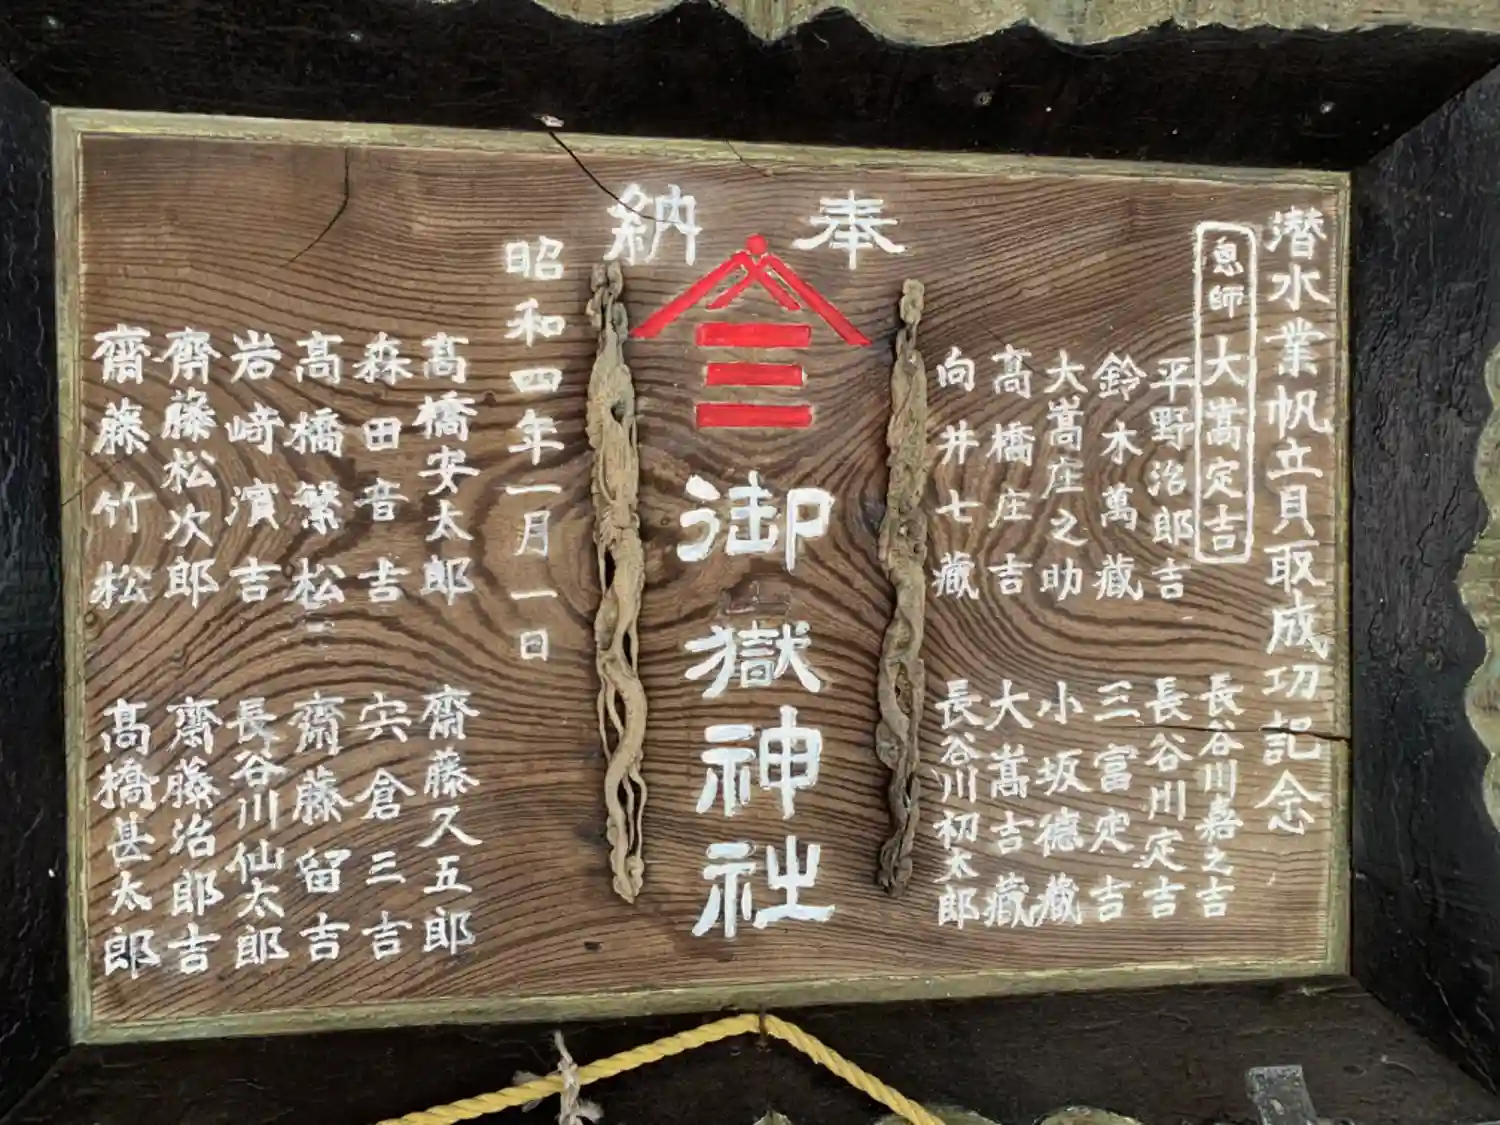 奉納
潜水業帆立貝取成功記念
恩師 大嵩定吉
長谷川嘉之吉
平野治郎吉
長谷川定吉
鈴木萬蔵
三富定吉
大嵩庄之助
小坂德蔵
髙橋庄吉
大嵩吉藏
向井七藏
長谷川初太郎
御嶽神社
昭和四年一月一日
髙橋安太郎
齋藤久五郎
森田音吉
宍倉三吉
髙橋繁松
齋藤留吉
岩﨑濱吉
長谷川仙太郎
齊藤松次郎
齋藤治郎吉
齋藤竹松
髙橋甚太郎